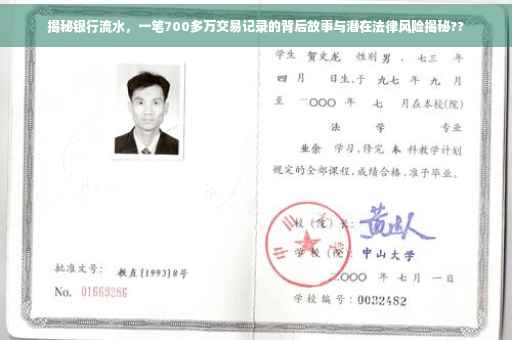 揭秘银行流水，一笔700多万交易记录的背后故事与潜在法律风险揭秘??
学生 贺文龙 性别 男 、七三 年
四 月 日生,于 九七 年 九 月
至 二〇〇〇 年 七 月在本校(院)
法 学 专业
业余 学习,修完 本 科教学计划
规定的全部课程,成绩合格,准予毕业。
校(院)长:
学校(院): 中山大学
批准文号: 教直[1993]8号
二〇〇〇 年 七 月 一 日
No. 01663286
学校编号: 0032482